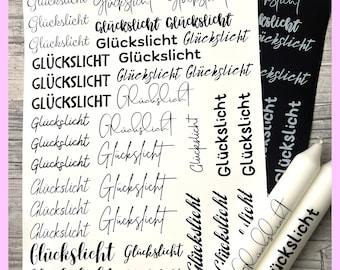 Glückslicht Glückslicht Glückslicht
Glückslicht Glückslicht Glückslicht
Glückslicht Glückslicht Glückslicht
GLÜCKSLICHT Glückslicht
GLÜCKSLICHT Glückslicht Glückslicht
GLÜCKSLICHT Glückslicht
Glückslicht Glückslicht
Glückslicht Glückslicht
Glückslicht Glückslicht
Glückslicht Glückslicht
Glückslicht Glückslicht
Glückslicht Glückslicht
Glückslicht
Glückslicht
Glückslicht
Glückslicht
Glückslicht
Glückslicht
Glückslicht
Glückslicht
Glückslicht